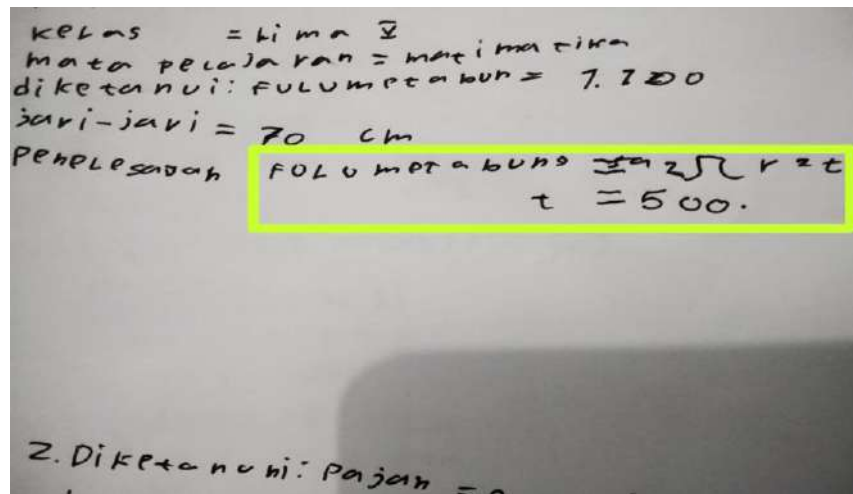 kelas = Lima V
mata pelajaran = matimatika
diketahui: FULUMetabun = 7.700
jari-jari = 70 cm
Penelesaoan FOLUmetabung = r2t
t = 500.
2. Diketahuhi: Pajan =